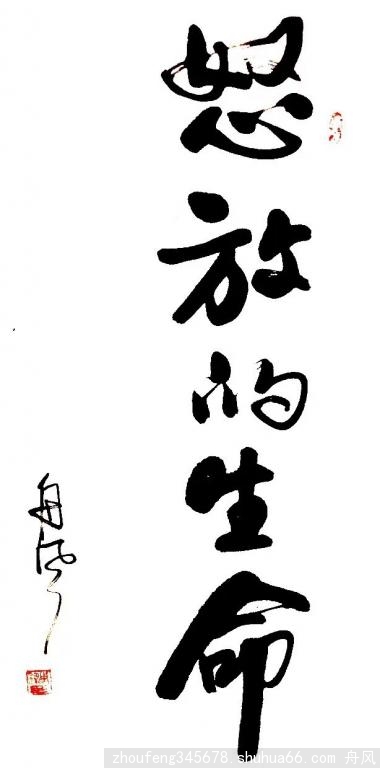 怒放的生命
舟风
zhoufeng345678.shuhua66.com 舟风